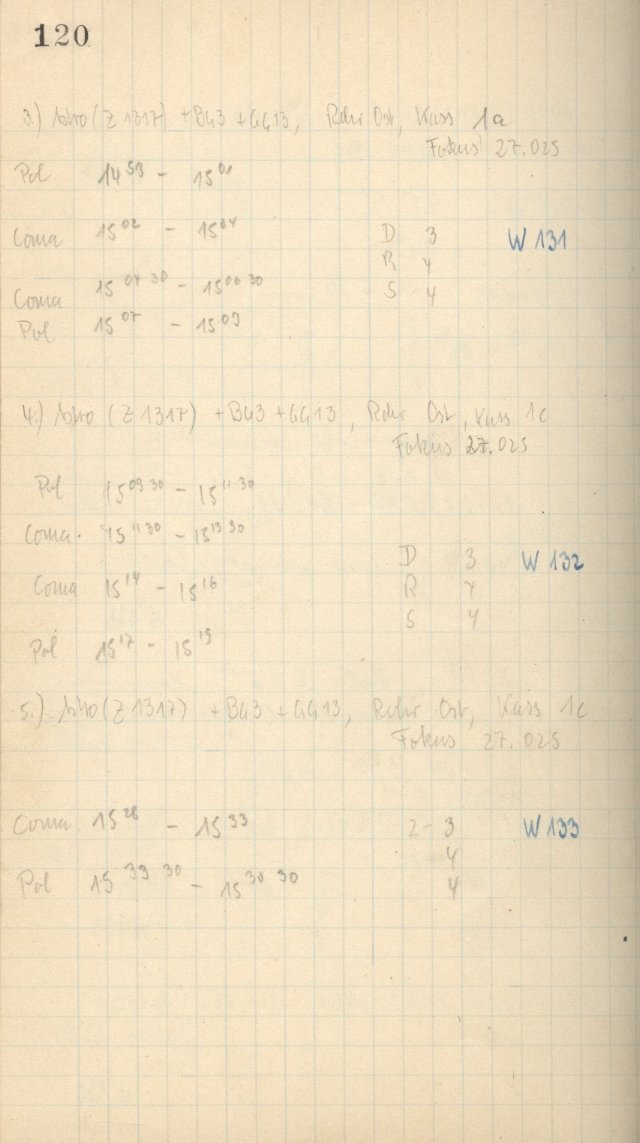 120
3.) Astro (Z 1317) + BG3 + GG13, Rohr Ost, Kass 1a
Fokus 27.025
Pol 14 59 - 15 01
Coma 15 02 - 15 04 D 3 W 131
R 4
Coma 15 04 30 - 15 06 30 S 4
Pol 15 07 - 15 09
4.) Astro (Z 1317) + BG3 + GG13, Rohr Ost, Kass 1c
Fokus 27.025
Pol 15 09 30 - 15 11 30
Coma. 15 11 30 - 15 13 30
D 3 W 132
Coma 15 14 - 15 16 R 4
S 4
Pol 15 17 - 15 19
5.) Astro (Z 1317) + BG3 + GG13, Rohr Ost, Kass 1c
Fokus 27.025
Coma 15 28 - 15 33 2-3 W 133
4
Pol 15 33 30 - 15 30 4